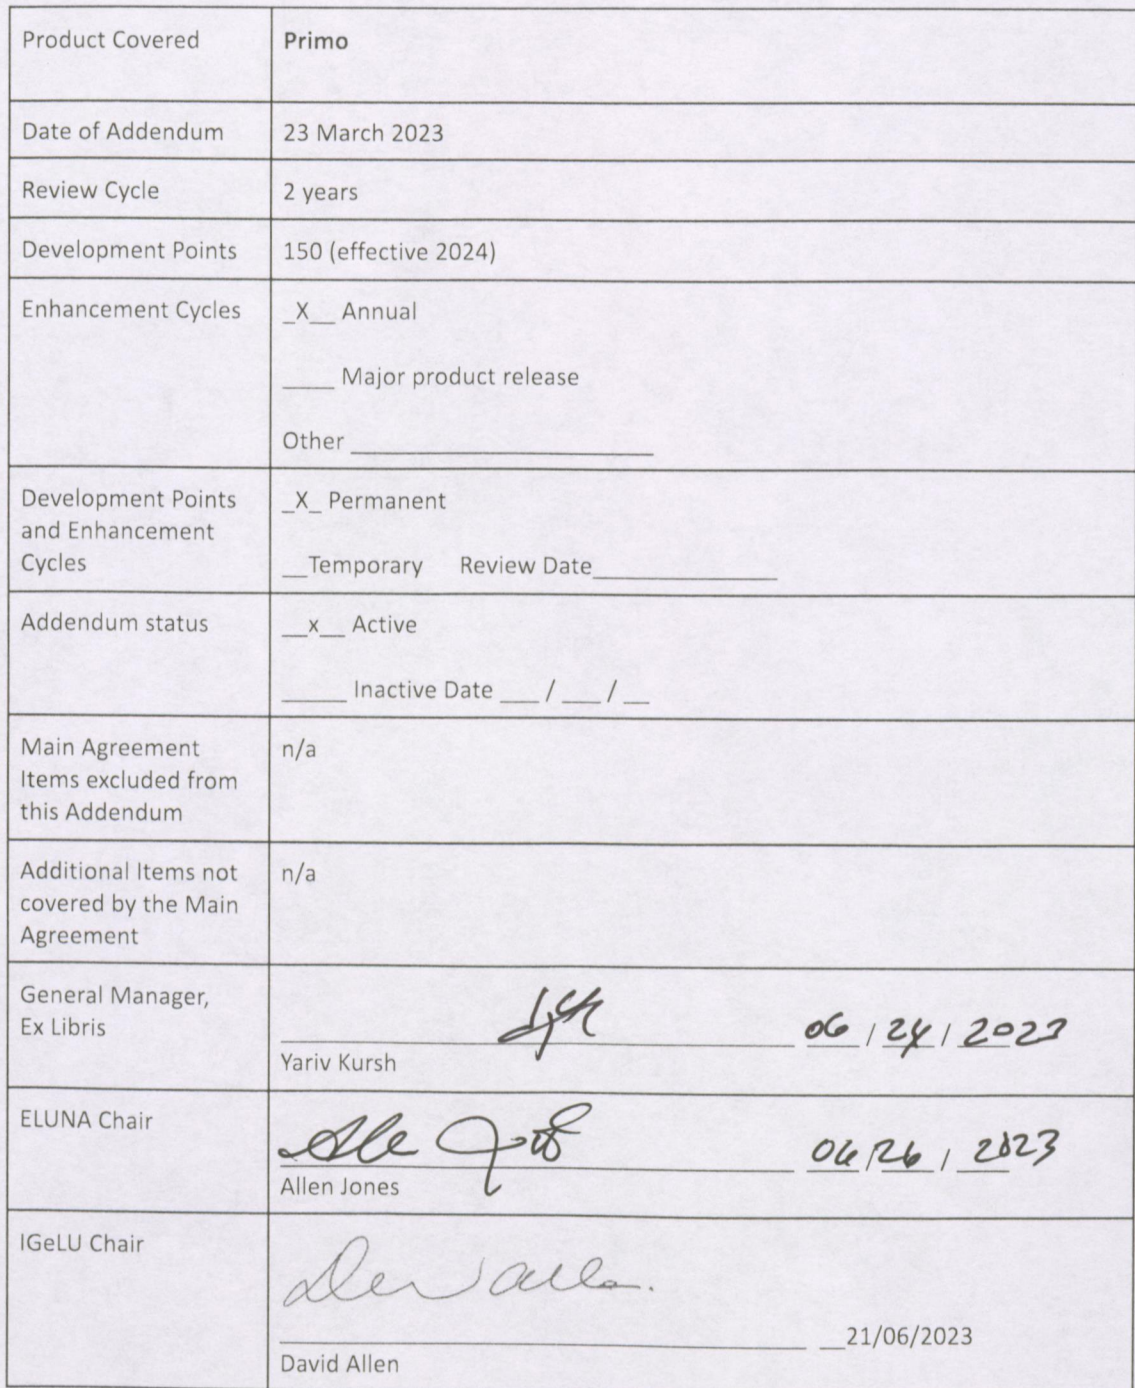 Product Covered
Primo
Date of Addendum
23 March 2023
Review Cycle
2 years
Development Points
150 (effective 2024)
Enhancement Cycles
_X__ Annual
____ Major product release
Other _______________________
Development Points
and Enhancement
Cycles
_X_ Permanent
__Temporary Review Date______________
Addendum status
__x__ Active
_____ Inactive Date ___ / ___ / __
Main Agreement
Items excluded from
this Addendum
n/a
Additional Items not
covered by the Main
Agreement
n/a
General Manager,
Ex Libris
06 / 24 / 2023
Yariv Kursh
ELUNA Chair
06/26 / 2023
Allen Jones
IGeLU Chair
__21/06/2023
David Allen